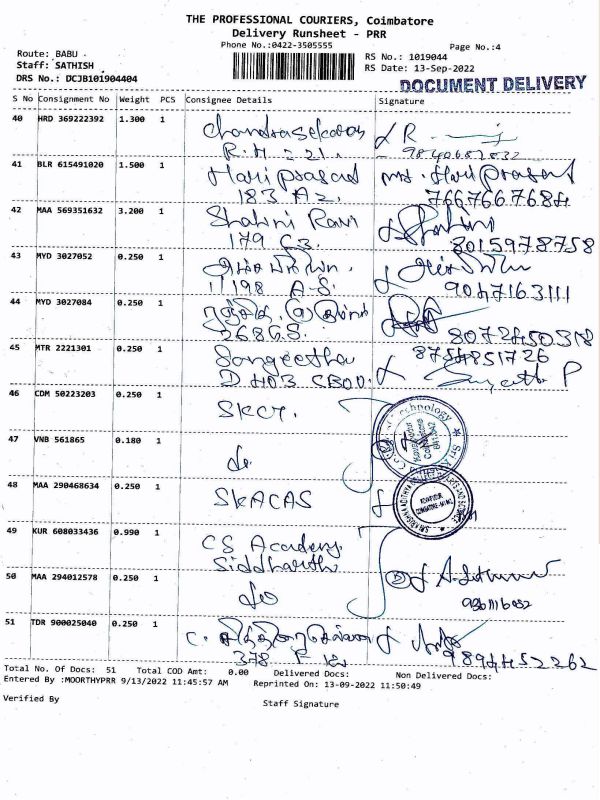 THE PROFESSIONAL COURIERS, Coimbatore
Delivery Runsheet - PRR
Phone No.:0422-3505555
Page No.:4
Route: BABU
Staff: SATHISH
DRS No.: DCJB101904404
RS No.: 1019044
RS Date: 13-Sep-2022
DOCUMENT DELIVERY
S No Consignment No Weight PCS Consignee Details Signature
40 HRD 369222392 1.300 1 Chandrasekaran
R.H - 21.
41 BLR 615491020 1.500 1 Hari prasad Hari prasad
183 A2. 7667667684
42 MAA 569351632 3.200 1 Shalini Ravi Shalini
179 C3. 8015978758
43 MYD 3027052 0.250 1
1/198 A-S. 9047163111
44 MYD 3027084 0.250 1
268 G.S. 8072450318
45 MTR 2221301 0.250 1 Sangeetha 8754851726
D 1403 CBOD. Sangeetha P
46 CDM 50223203 0.250 1 SKCT.
47 VNB 561865 0.180 1 do
48 MAA 290468634 0.250 1 SKACAS
49 KUR 608033436 0.990 1 CS Academy
Siddharth
50 MAA 294012578 0.250 1 do
51 TDR 900025040 0.250 1
378 9894452262
Total No. Of Docs: 51 Total COD Amt: 0.00 Delivered Docs: Non Delivered Docs:
Entered By :MOORTHYPRR 9/13/2022 11:45:57 AM Reprinted On: 13-09-2022 11:50:49
Verified By
Staff Signature